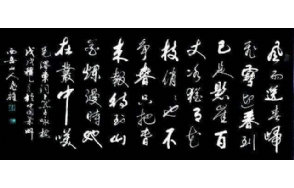 風雨送春歸
飛雪迎春到
已是懸崖百
丈冰猶有花
枝俏也不
爭春只把春
來報待到山
花爛漫時她
在叢中笑
毛澤東詞卜算子詠梅
戊戌
山人